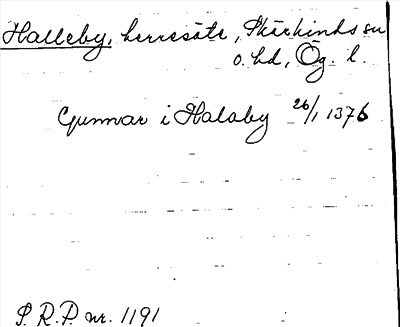 Halleby, herresäte, Skärkinds sn
o. hd, Ög. l.
Gunnar i Halaby 26/1 1376
S. R. P. nr. 1191